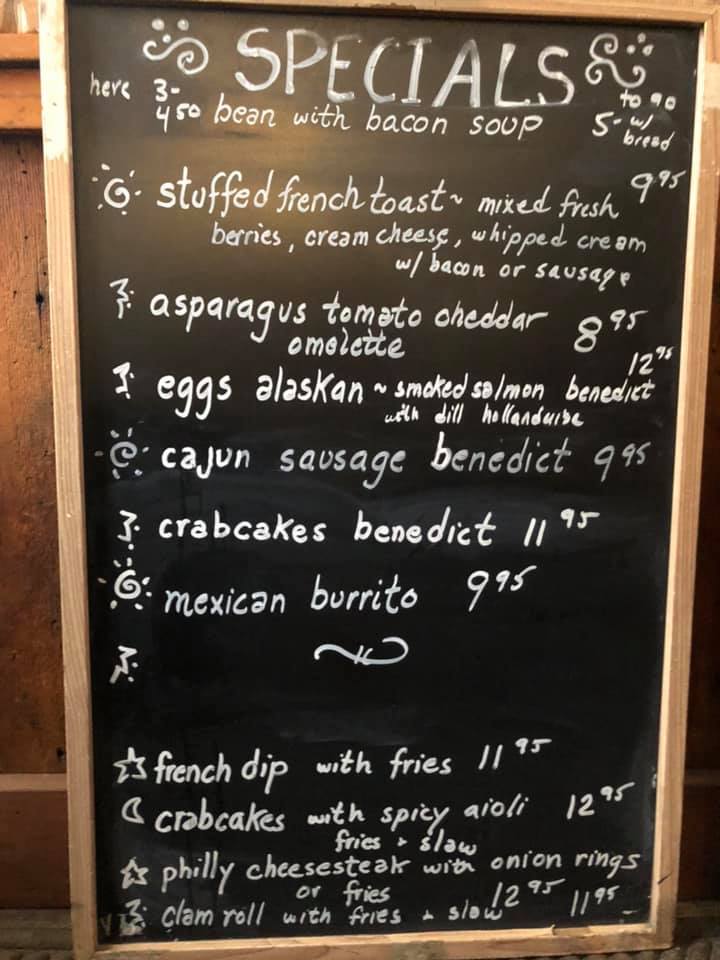 SPECIALS
here 3- to go
4 50 bean with bacon soup 5- w/ bread
stuffed french toast ~ mixed fresh 9 95
berries, cream cheese, whipped cream
w/ bacon or sausage
asparagus tomato cheddar 8 95
omelette
eggs alaskan ~ smoked salmon benedict 12 95
with dill hollandaise
cajun sausage benedict 9 95
crabcakes benedict 11 95
mexican burrito 9 95
french dip with fries 11 95
crabcakes with spicy aioli 12 95
fries + slaw
philly cheesesteak with onion rings
or fries 12 95
clam roll with fries + slaw 11 95